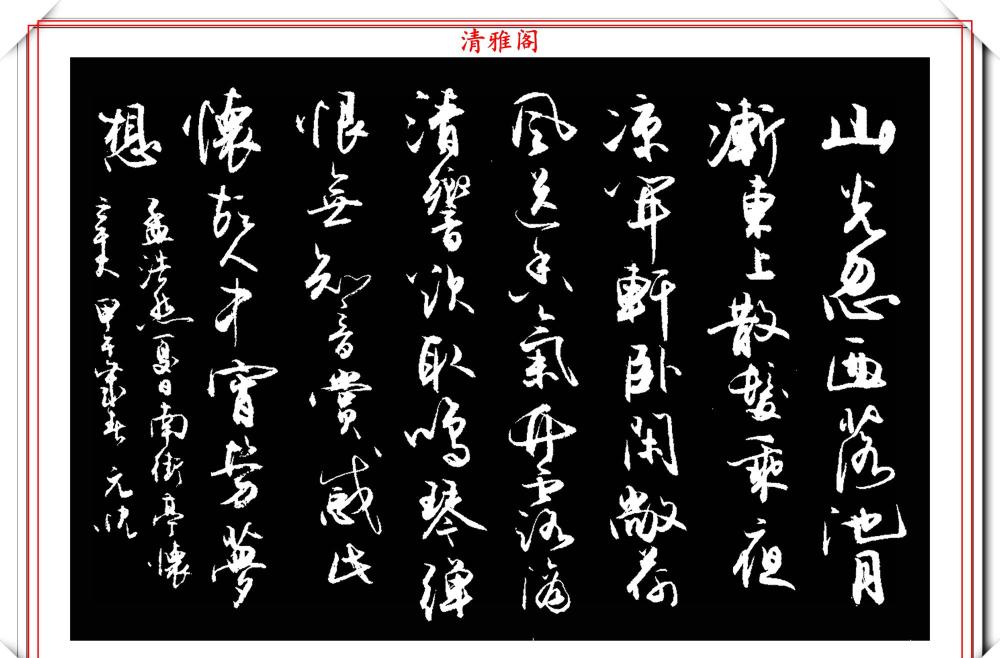 清雅阁
山光忽西落池月
漸東上散髮乘夜
凉開軒卧閑敞荷
風送香氣竹露滴
清響欲取鳴琴彈
恨無知音賞感此
懷故人中宵勞夢
想
孟浩然夏日南街亭懷
辛大 甲午歲春 元